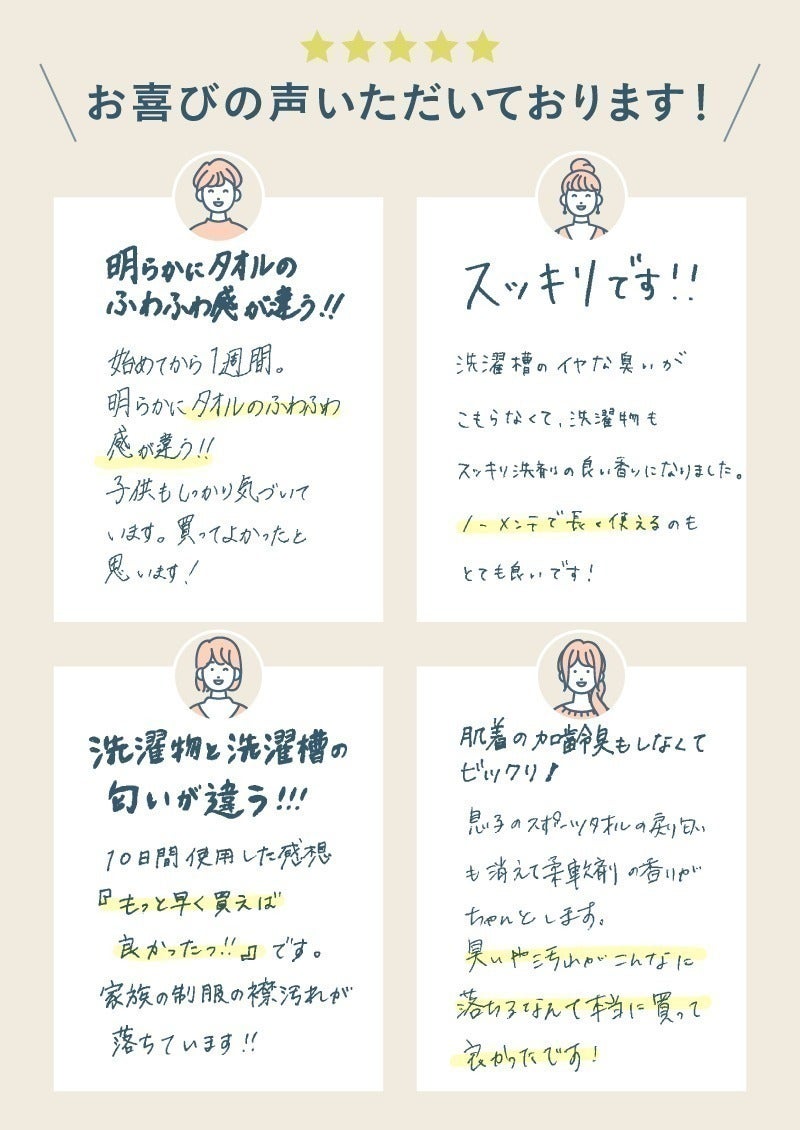 お喜びの声いただいております！
明らかにタオルの
ふわふわ感が違う!!
始めてから1週間。
明らかにタオルのふわふわ
感が違う!!
子供もしっかり気づいて
います。買ってよかったと
思います!
スッキリです!!
洗濯槽のイヤな臭いが
こもらなくて、洗濯物も
スッキリ洗剤の良い香りになりました。
ノーメンテで長く使えるのも
とても良いです!
洗濯物と洗濯槽の
匂いが違う!!!
10日間使用した感想
『もっと早く買えば
良かったっ!!』です。
家族の制服の襟汚れが
落ちています!!
肌着の加齢臭もしなくて
ビックリ!
息子のスポーツタオルの戻り匂い
も消えて柔軟剤の香りが
ちゃんとします。
臭いや汚れがこんなに
落ちるなんて本当に買って
良かったです!